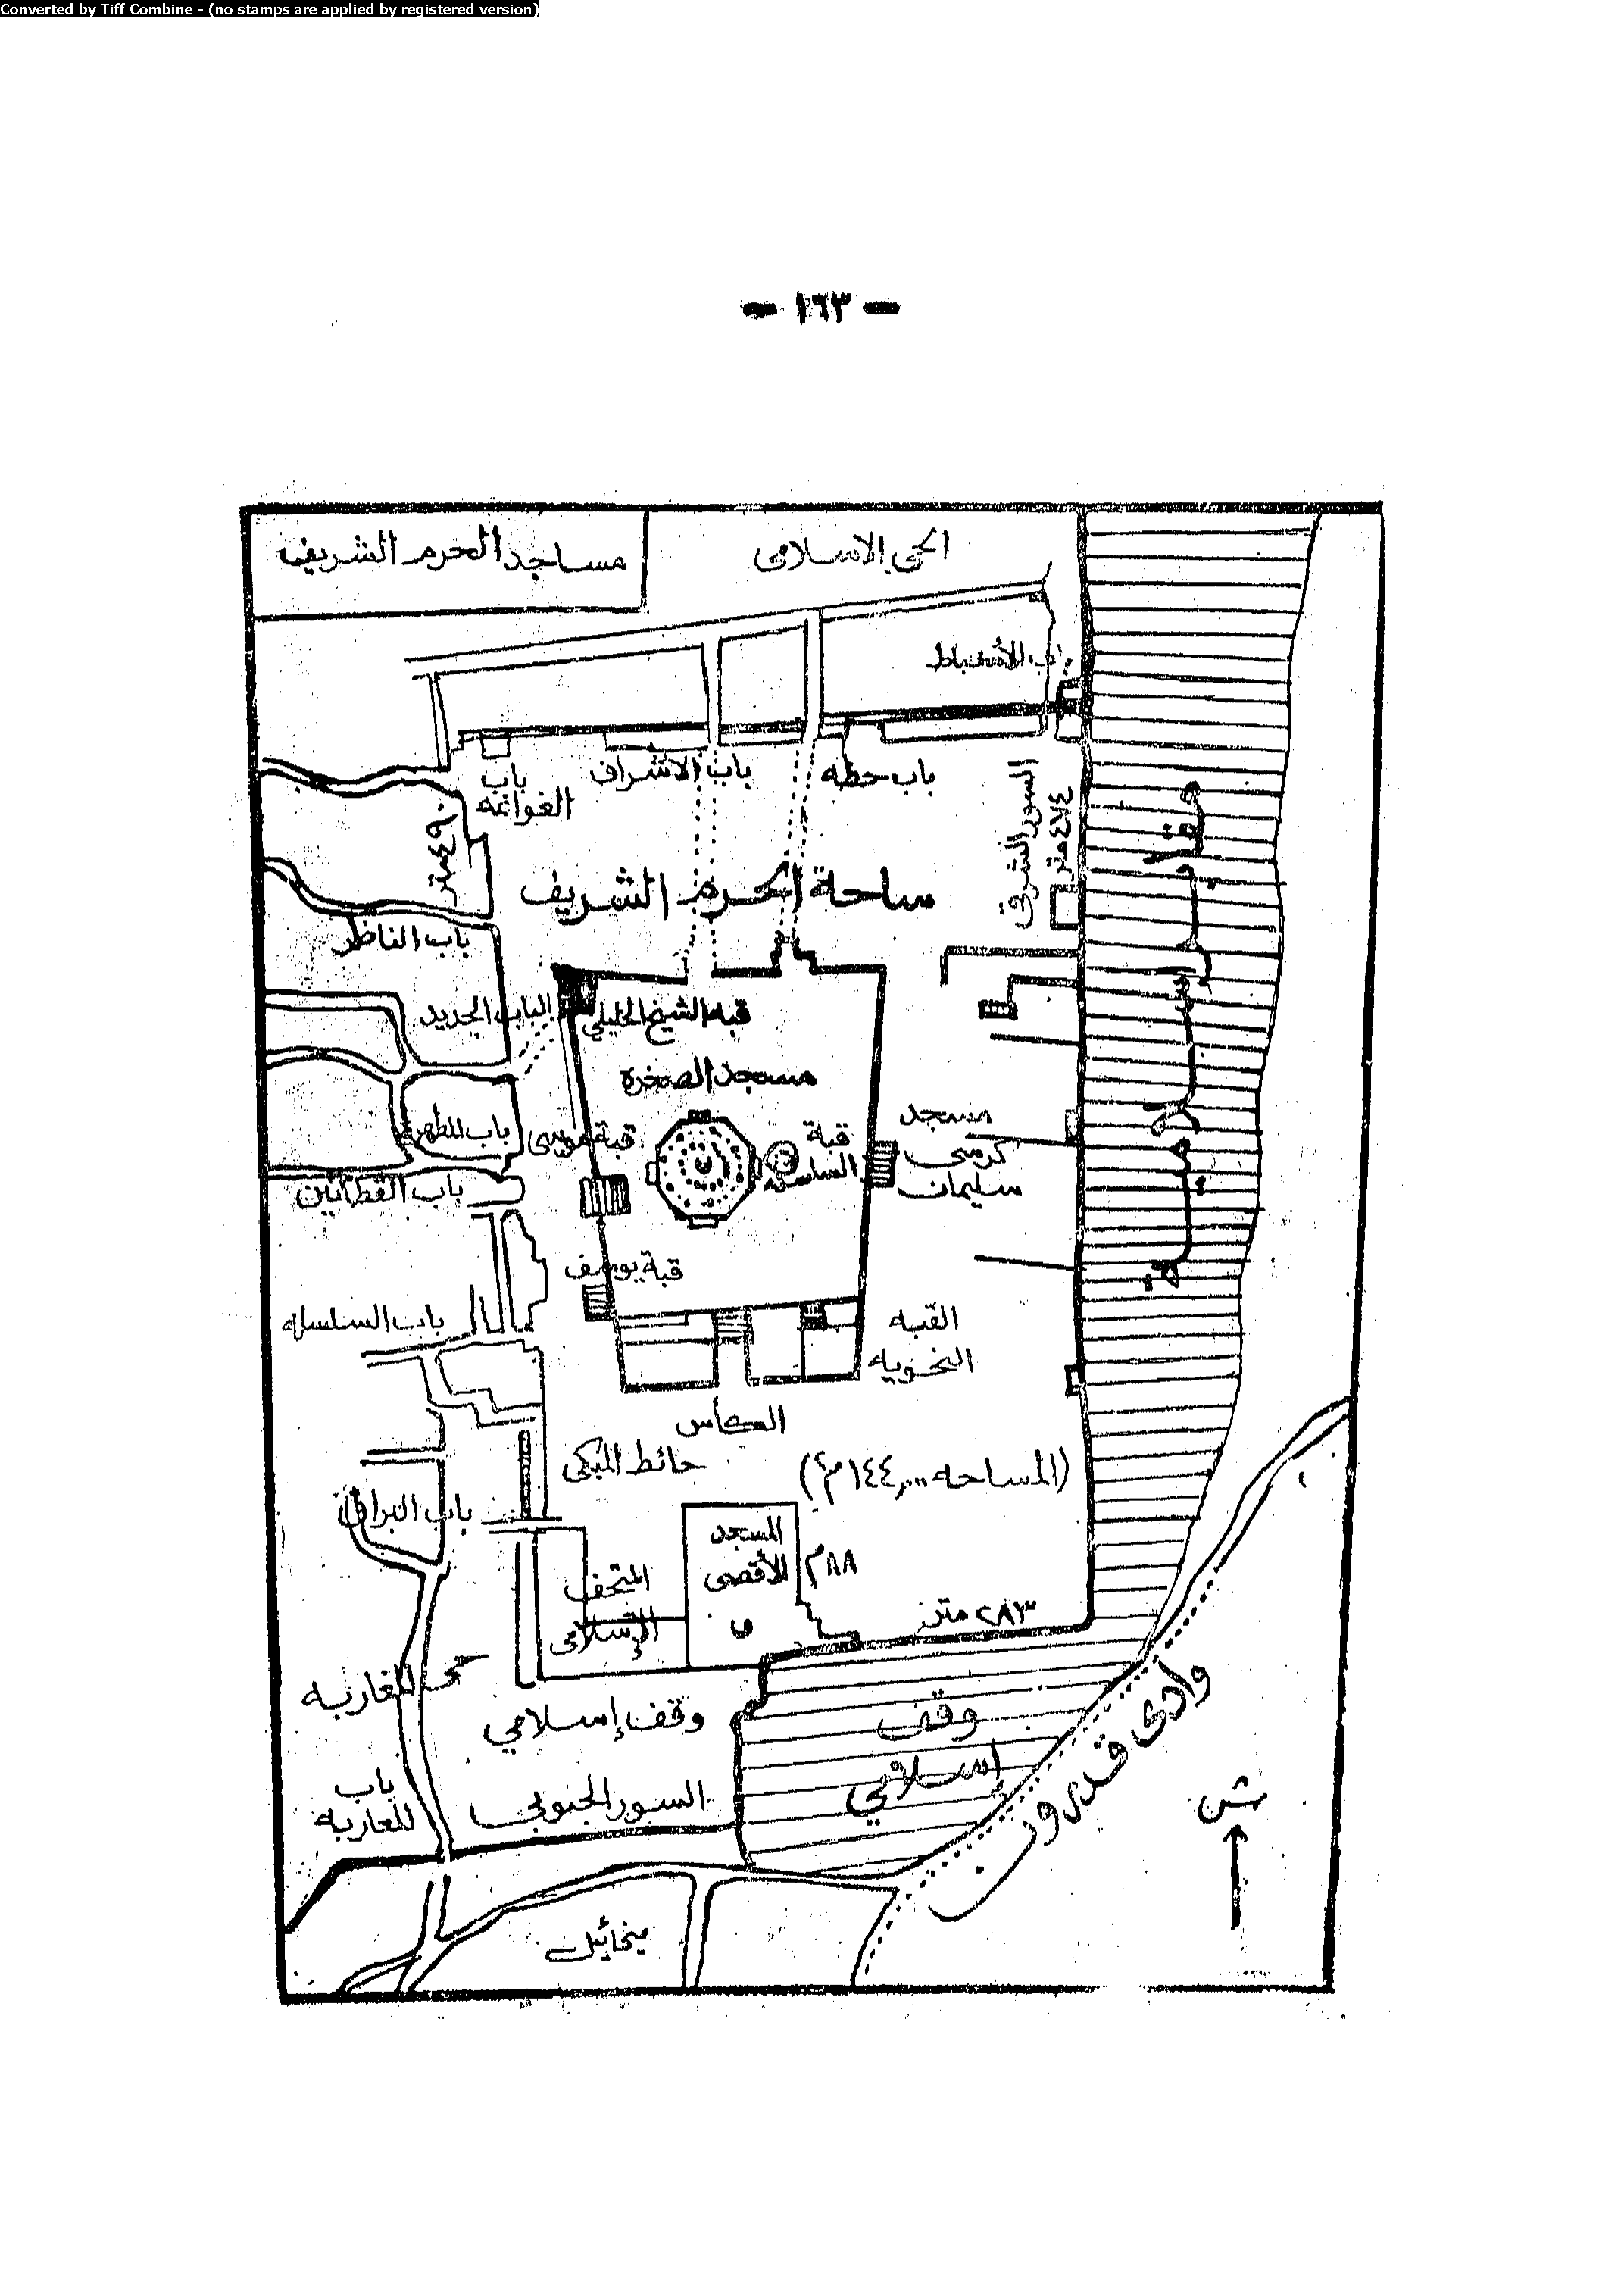 Converted by Tiff Combine - (no stamps are applied by registered version)
- ١٦٣ -
مساجد الحرم الشريف
الحى الاسلامى
باب الأسباط
باب حطه
باب الاشراف
باب
الغوانمه
السور الشرقى
٤٧٤ متر
٤٩٠ متر
ساحة الحرم الشريف
مقابر إسلامية
باب الناظر
الباب الجديد
قبة الشيخ الخليلي
مسجد الصخره
باب المطهره
قبة موسى
قبة
السلسله
مسجد
كرسى
سليمان
باب القطانين
قبة يوسف
باب السلسله
القبه
النحويه
الكأس
حائط المبكى
(المساحه ١٤٤,٠٠٠ م٢)
باب البراق
المسجد
الأقصى
٨٨ م
المتحف
الإسلامى
٢٨٣ متر
حى المغاربه
وقف إسلامي
وقف
إسلامي
وادى قدرون
باب
المغاربه
السور الجنوبي
ش
ميخائيل